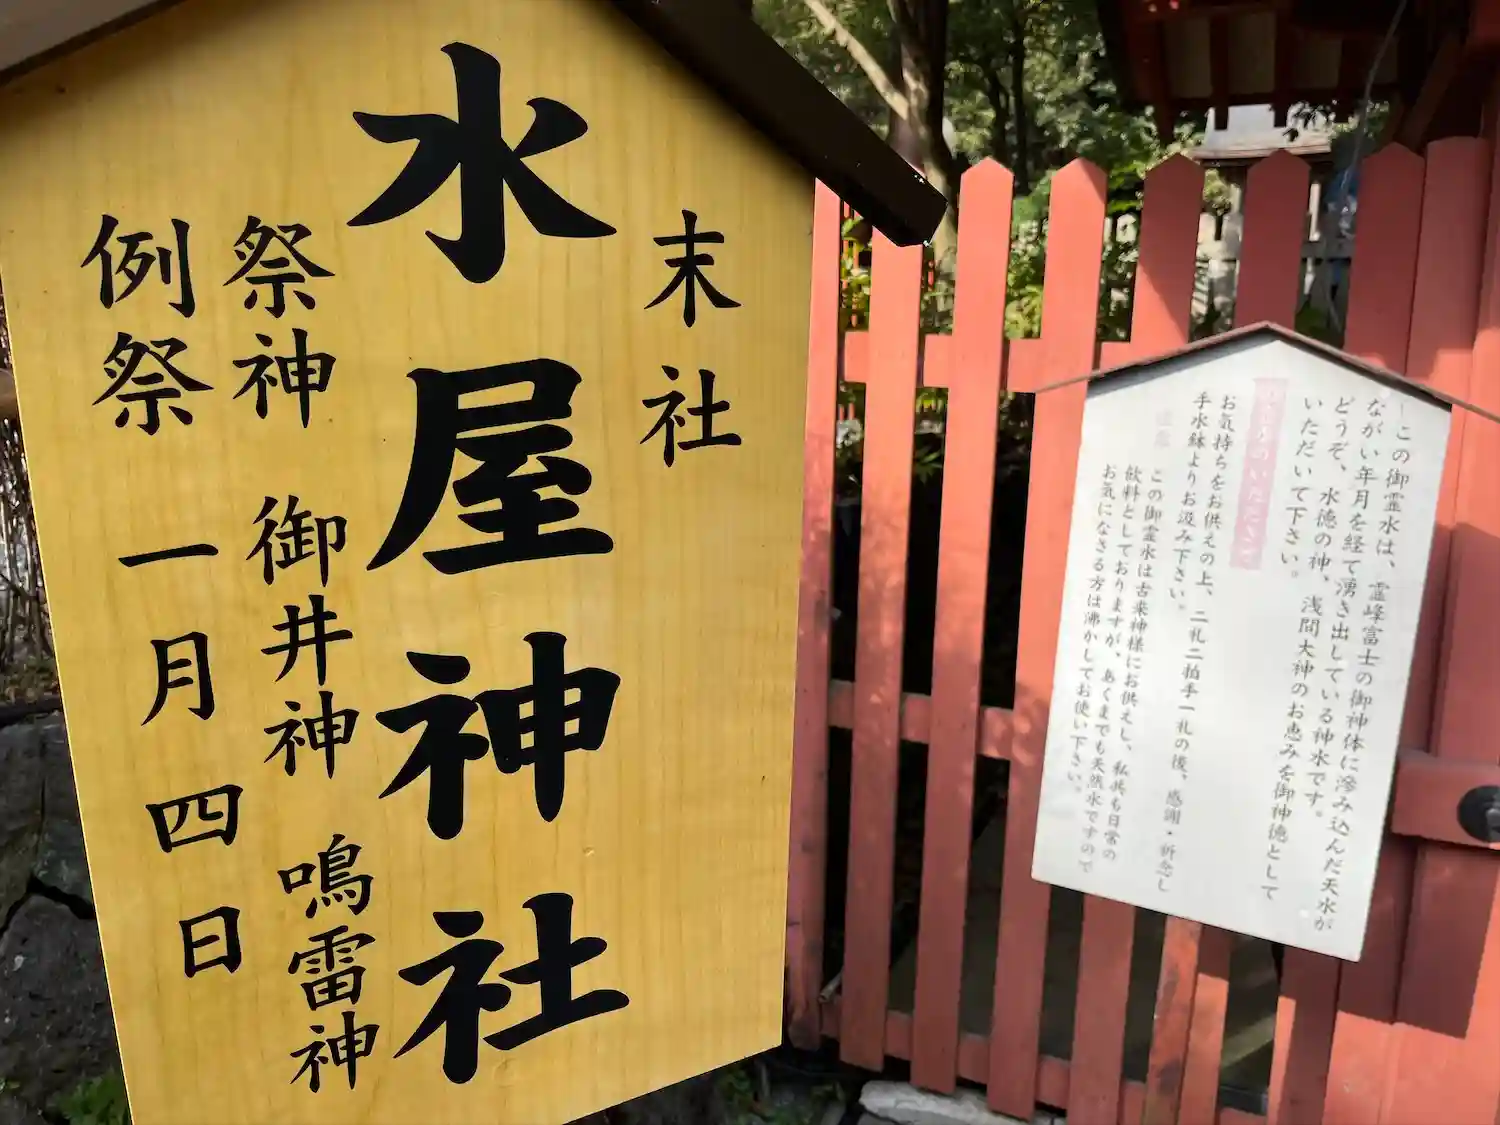 末社
水屋神社
祭神 御井神 鳴雷神
例祭 一月四日
この御霊水は、霊峰富士の御神体に滲み込んだ天水が
ながい年月を経て湧き出している神水です。
どうぞ、水徳の神、浅間大神のお恵みを御神徳として
いただいて下さい。
のいただき
お気持ちをお供えの上、二礼二拍手一礼の後、感謝・祈念し
手水鉢よりお汲み下さい。
この御霊水は古来神様にお供えし、私共も日常の
飲料としておりますが、あくまでも天然水ですので
お気になさる方は沸かしてお使い下さい。